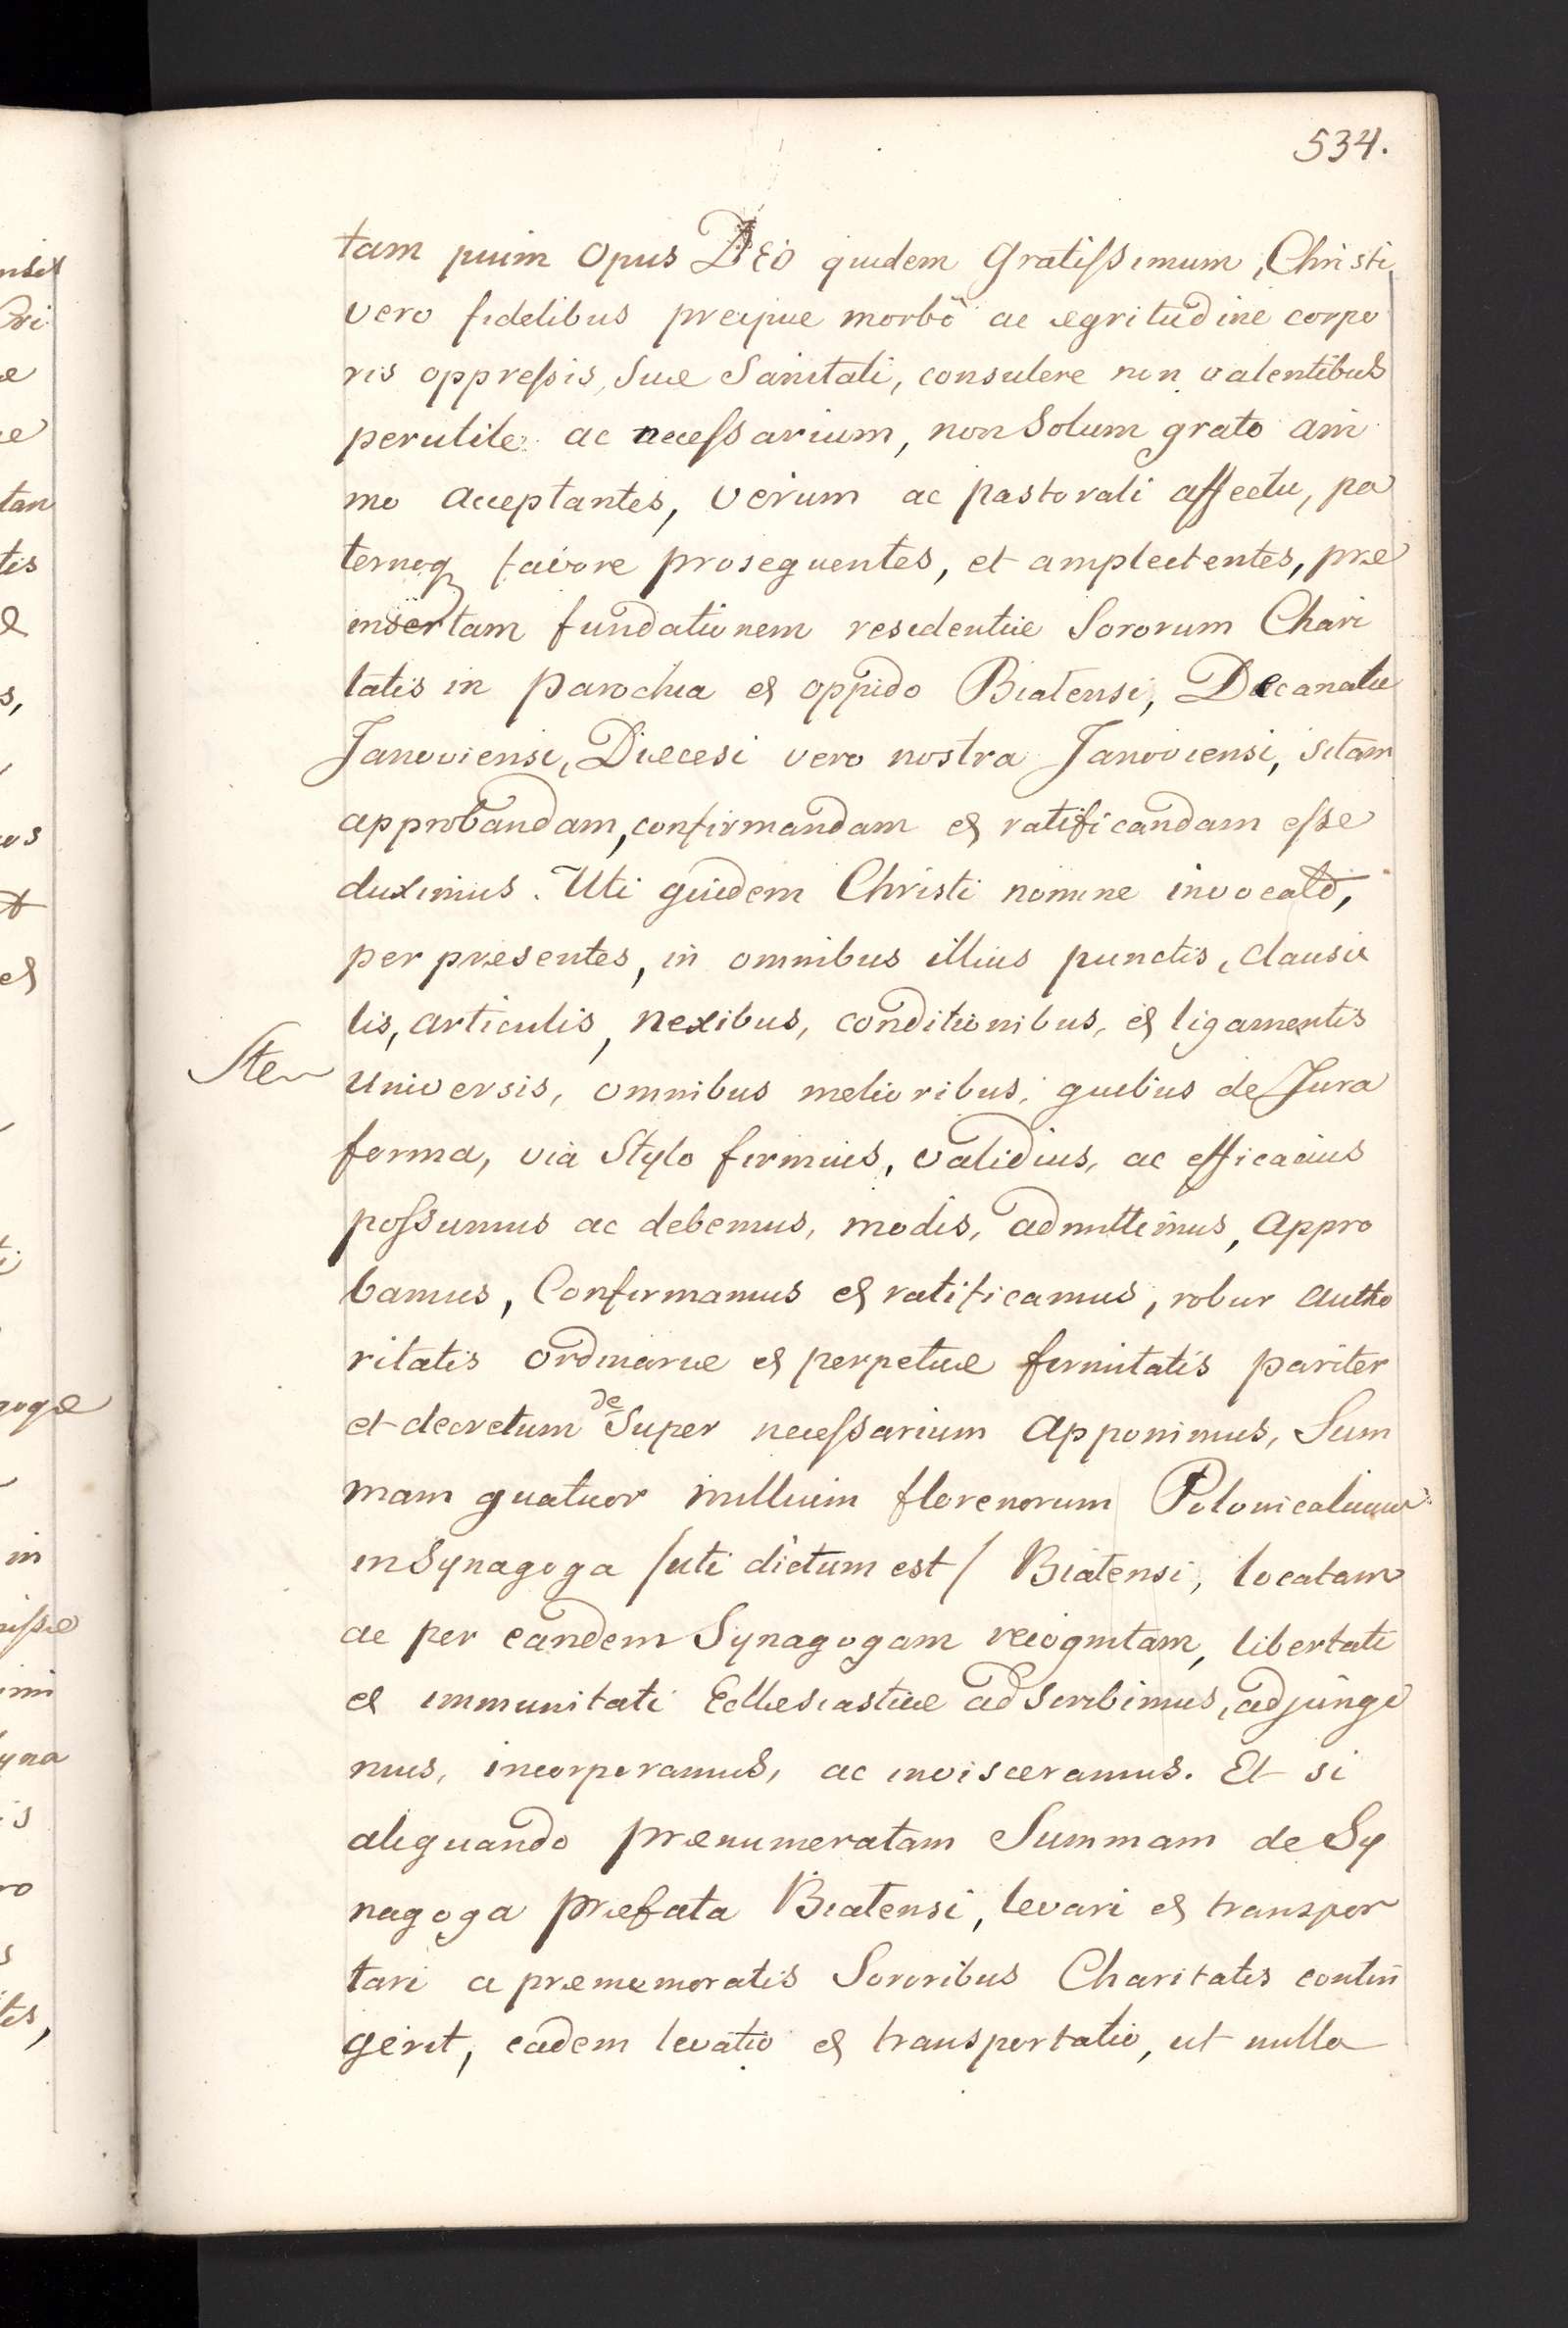 534.
tam pium Opus DEO quidem Gratissimum, Christi
vero fidelibus precipue morbô ac ægritudine corpo
ris oppressis, suæ Sanitati, consulere non valentibus
perutile ac necessarium, non Solum grato ani
mo acceptantes, verum ac pastorali affectu, pa
ternoq favore prosequentes, et amplectentes, præ
insertam fundationem residentiæ Sororum Chari
tatis in parochia et oppido Bialensi, Decanatu
Janoviensi, Diæcesi vero nostra Janoviensi, sitam
approbandam, confirmandam et ratificandam esse
duximus. Uti quidem Christi nomine invocato,
per præsentes, in omnibus illius punctis, clausu
lis, articulis, nexibus, conditionibus, et ligamentis
Universis, omnibus melioribus, quibus de Jura
forma, via Stylo firmius, validius, ac efficacius
possumus ac debemus, modis, admittimus, appro
bamus, Confirmamus et ratificamus, robur autho
ritatis ordinariæ et perpetuæ firmitatis pariter
et decretum de Super necessarium apponimus, Sum
mam quatuor millium florenorum Polonicalium
in Synagoga /uti dictum est/ Bialensi, locatam
ac per eandem Synagogam recognitam, libertati
et immunitati Ecclesiasticæ adscribimus, adjungi
mus, incorporamus, ac invisceramus. Et si
aliquando prænumeratam Summam de Sy
nagoga præfata Bialensi, levari et transpor
tari a præmemoratis Sororibus Charitatis contin
gerit, eadem levatio et transportatio, ut nulla